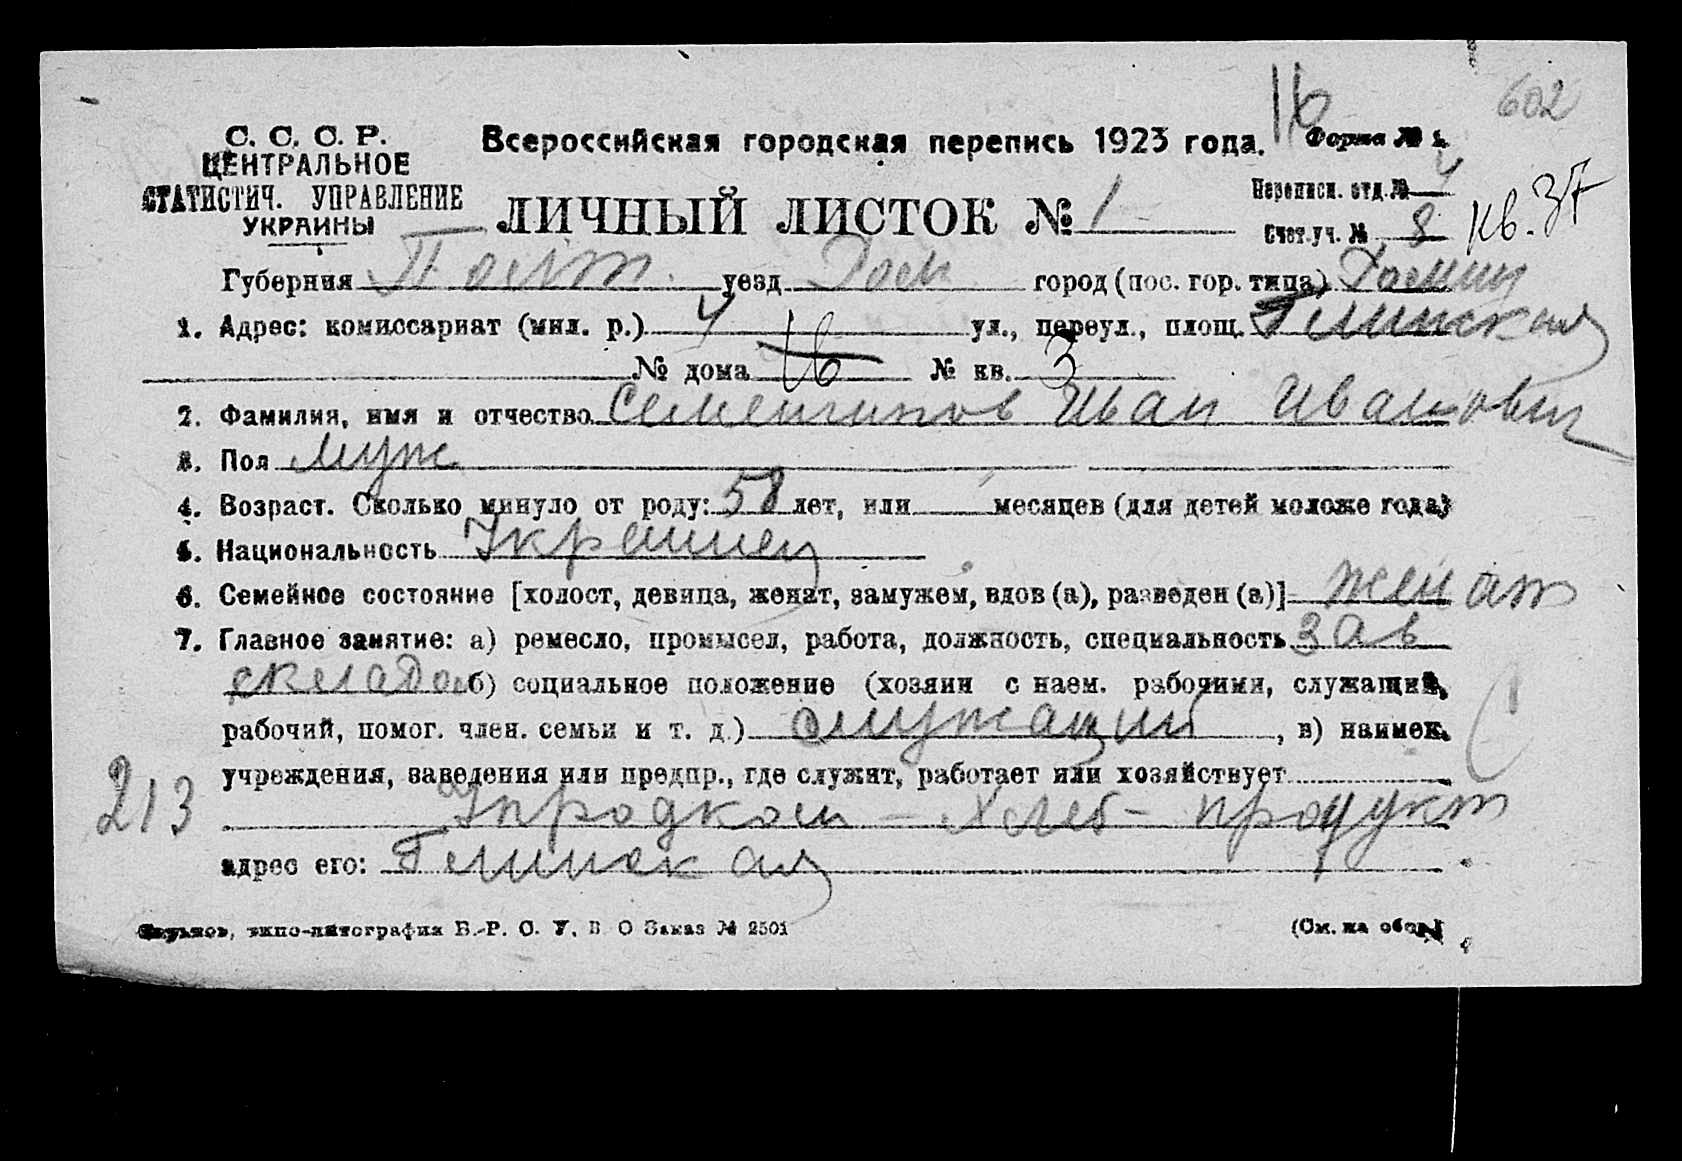 16
602
С. С. С. Р. Всероссийская городская перепись 1923 года. Форма № 1.
ЦЕНТРАЛЬНОЕ
СТАТИСТИЧ. УПРАВЛЕНИЕ
УКРАИНЫ
ЛИЧНЫЙ ЛИСТОК № 1
Переписн. отд. № 4
Счет. уч. № 8 кв. 37
Губерния Полт. уезд Ромн город (пос. гор. типа) Ромны
1. Адрес: комиссариат (мил. р.) 4 ул., переул., площ. Глинская
№ дома 16 № кв. 3
2. Фамилия, имя и отчество Иван Иванович
3. Пол муж
4. Возраст. Сколько минуло от роду: 58 лет, или месяцев (для детей моложе года)
5. Национальность Украинец
6. Семейное состояние [холост, девица, женат, замужем, вдов (а), разведен (а)] женат
7. Главное занятие: а) ремесло, промысел, работа, должность, специальность Зав
складом б) социальное положение (хозяин с наем. рабочими, служащий,
рабочий, помог. член. семьи и т. д.) служащий, в) наимен.
учреждения, заведения или предпр., где служит, работает или хозяйствует
213 Упродком - Хлебпродукт
адрес его: Глинская
Харьков, типо-литография В.-Р. С. У. В О Заказ № 2501 (См. на обор.)